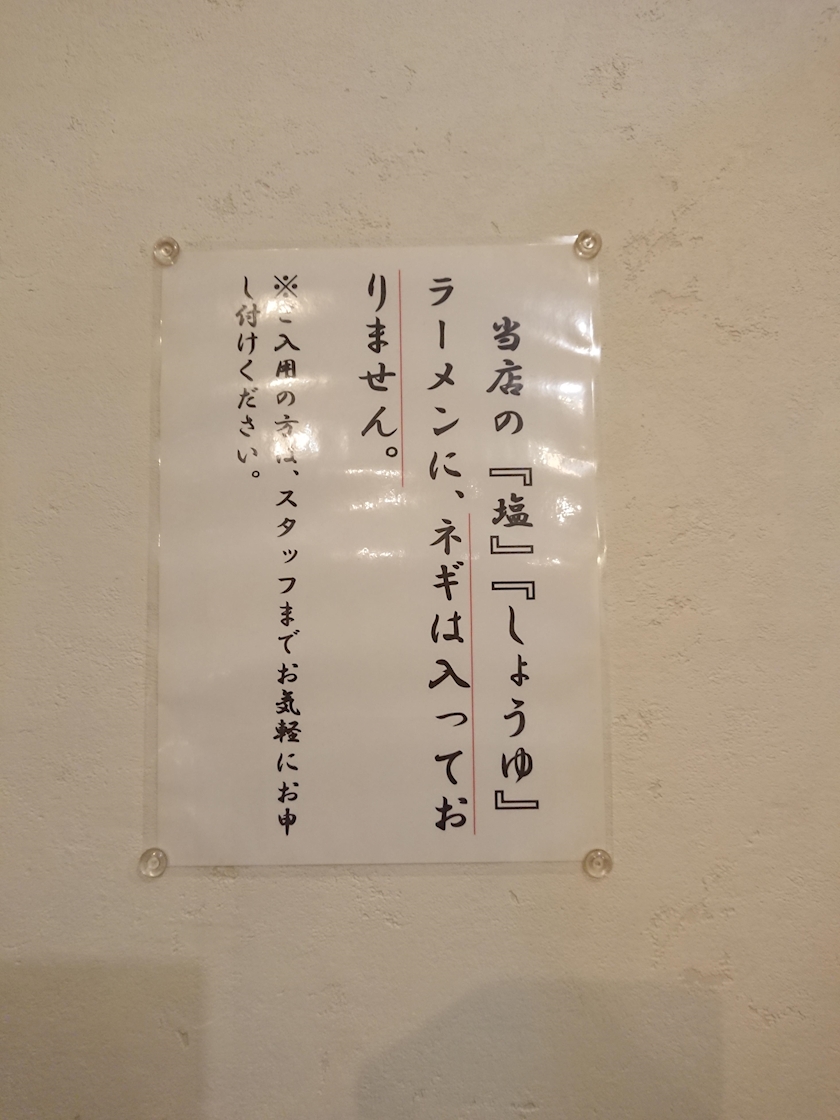 当店の『塩』『しょうゆ』
ラーメンに、ネギは入ってお
りません。
※ご入用の方は、スタッフまでお気軽にお申
し付けください。